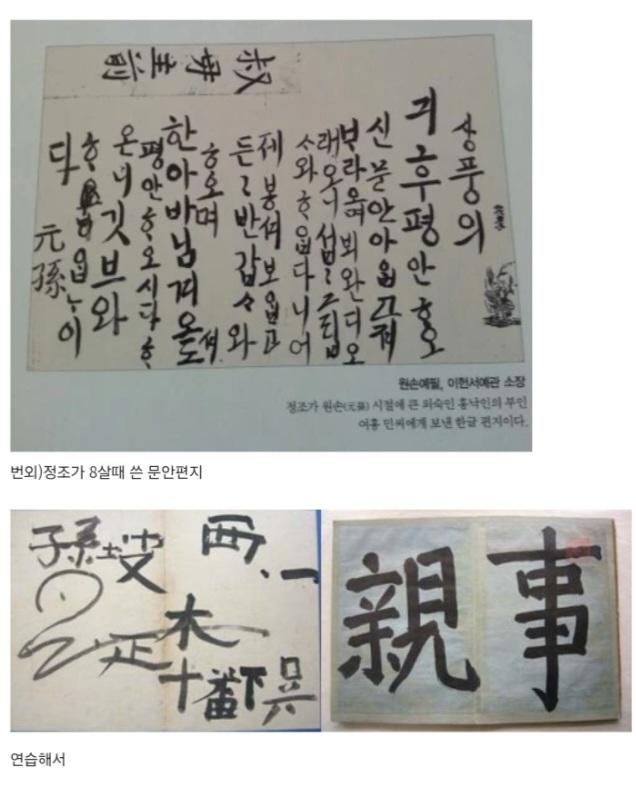 叔母主前
상풍의
긔후평안ᄒᆞ오
신문안아ᄋᆞᆸ고져
ᄇᆞ라오며뵈완디오
래오니섭〻그립
ᄉᆞ와ᄒᆞᄋᆞᆸ다니어
제봉셔보ᄋᆞᆸ고
든〻반갑ᄉᆞ와
ᄒᆞ오며
한아바님겨오셔도
평안ᄒᆞ오시다ᄒᆞ
온니깃브와
ᄒᆞᄋᆞᆸᄂᆞ이
다
元孫
원손예필, 이헌서예관 소장
정조가 원손(元孫) 시절에 큰 외숙인 홍낙인의 부인
여흥 민씨에게 보낸 한글 편지이다.
번외)정조가 8살때 쓴 문안편지
孫
西
一
木
十
下
事
親
연습해서